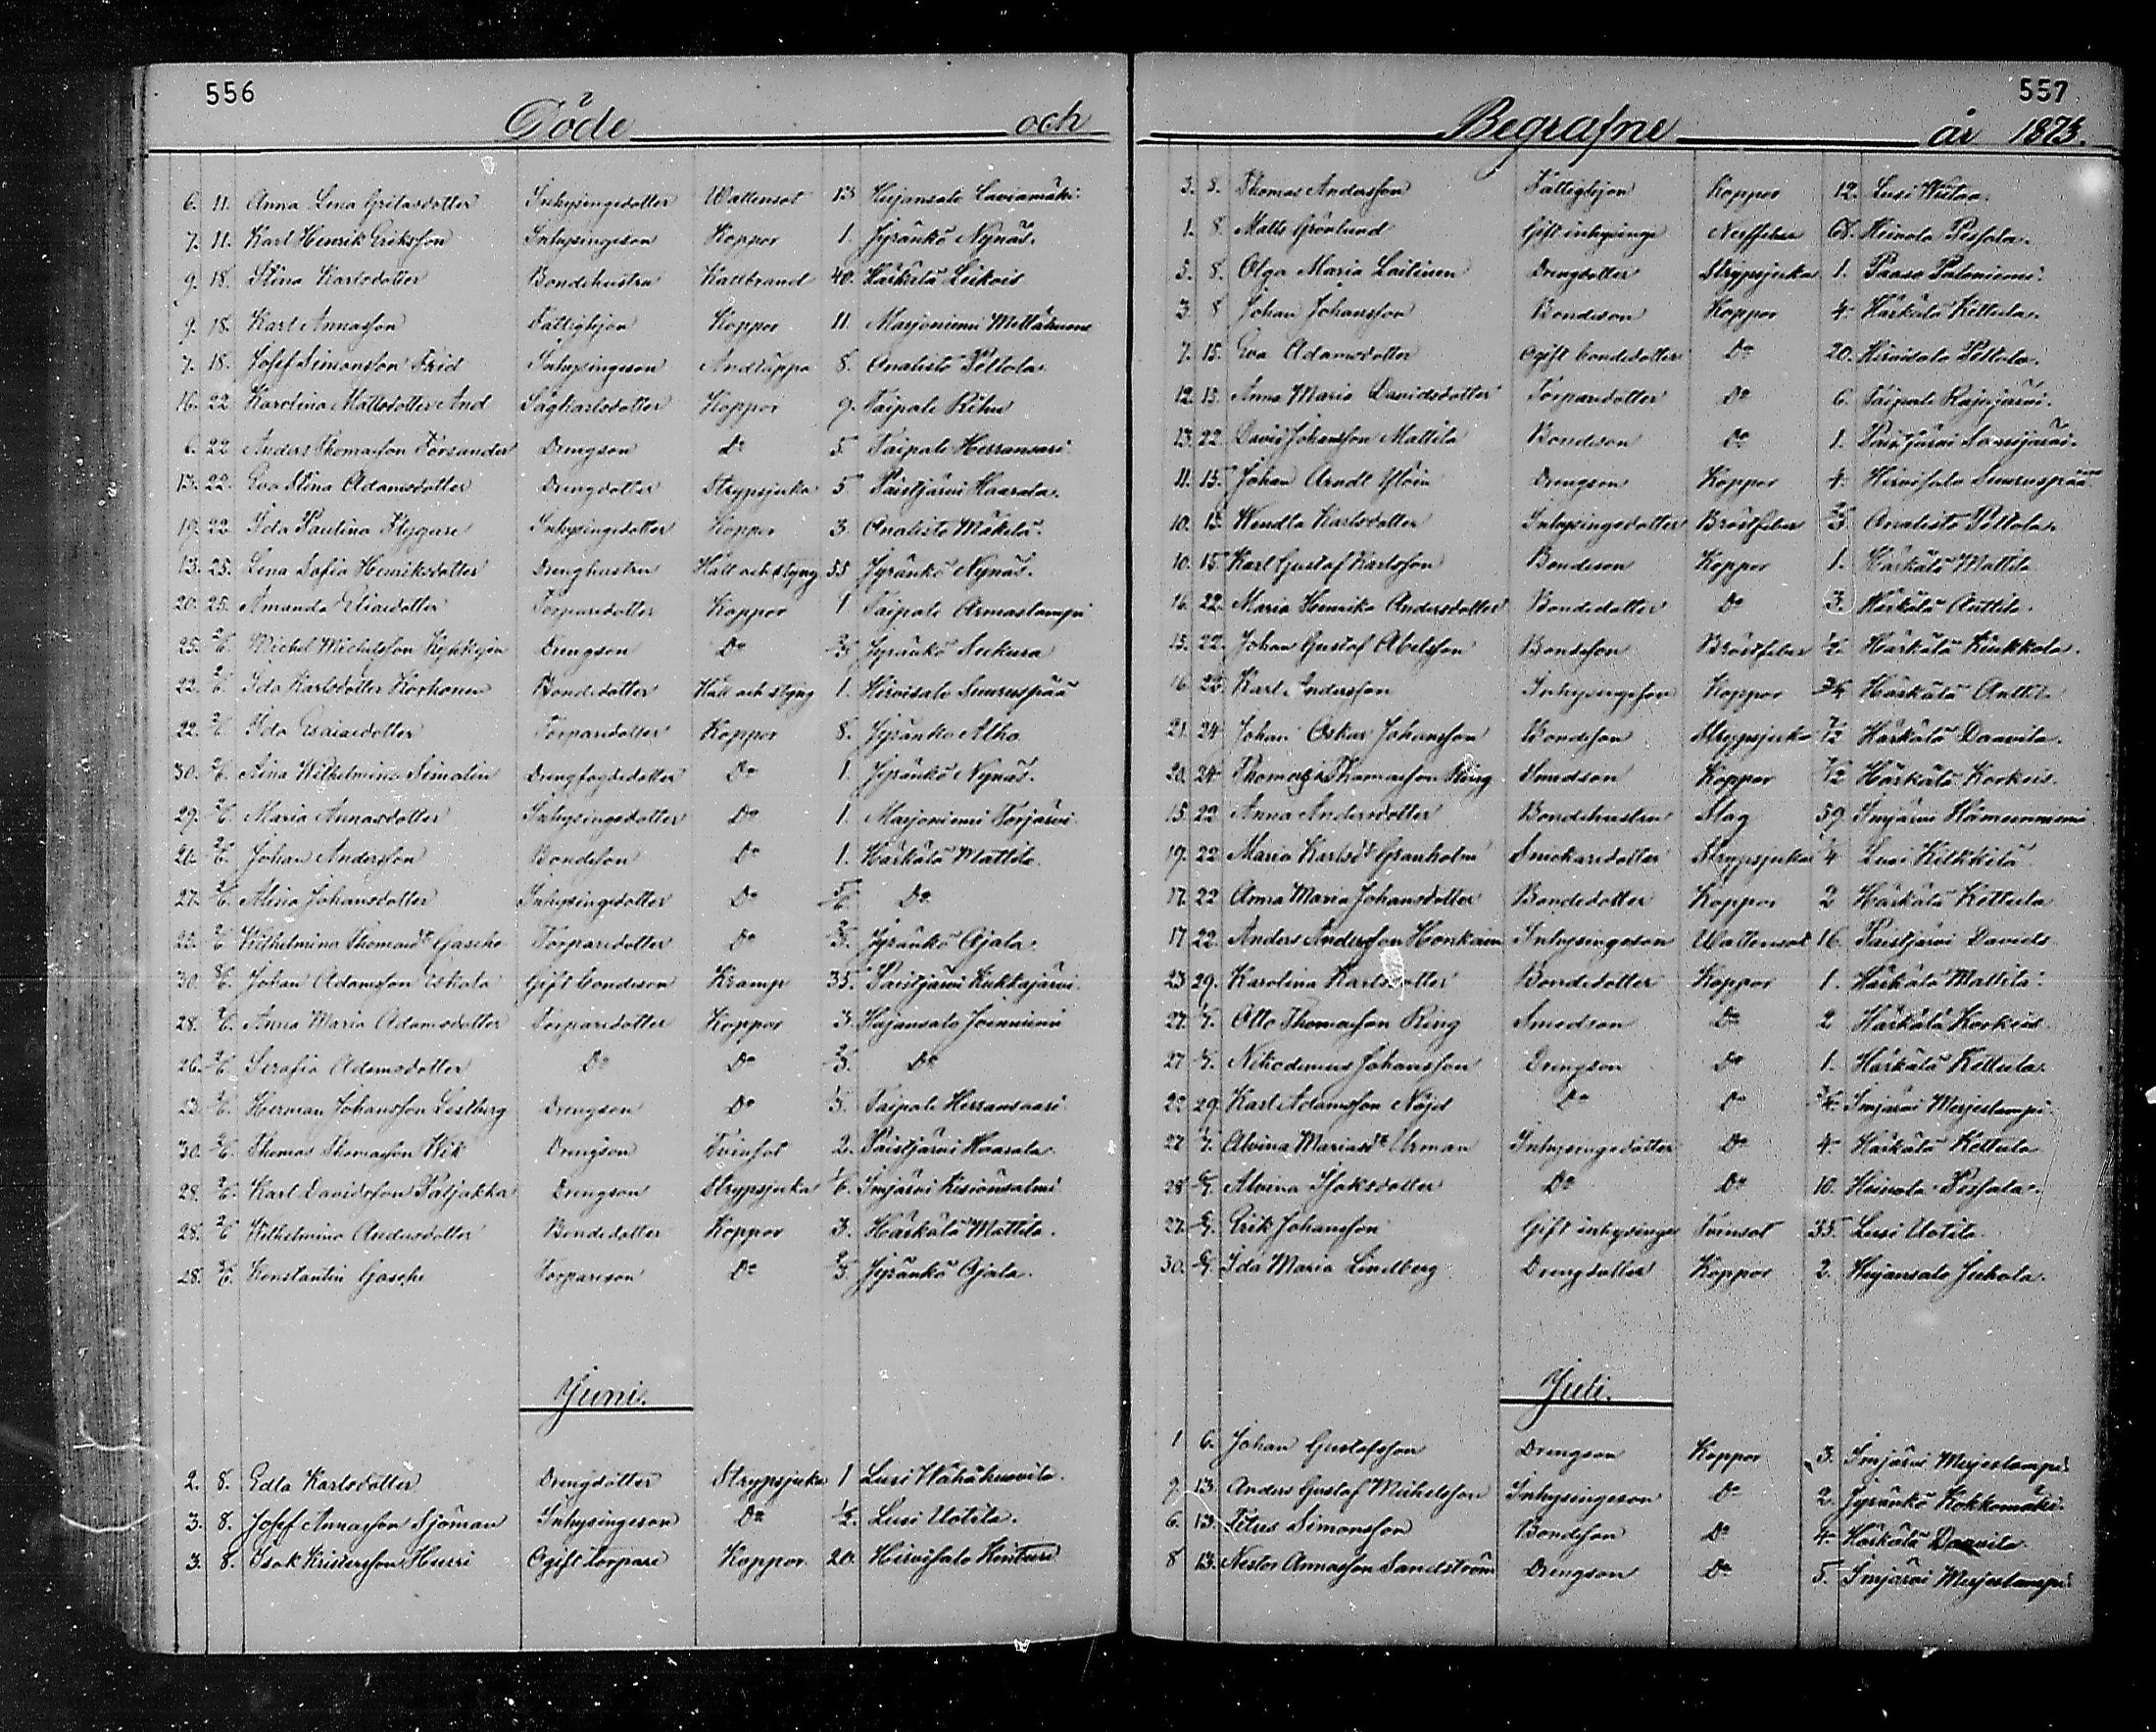 556
Döde och
6. 11. Anna Lena Gretasdotter Inhysingedotter Wattensot 13 Heijansalo Laviamäki
7. 11. Karl Henrik Eriksson Inhysingeson Koppor 1. Jyränkö Nynäs.
9. 18. Stina Karlsdotter Bondehustru Kallbrand 40. Härkälä Leikois
9. 18. Karl Annasson Fattighjon Koppor 11. Marjoniemi
7. 18. Josef Simonsson Frid Inhysingeson Andtäppa 8. Onalisto Peltola.
16. 22 Karolina Mattsdotter And Sågkarlsdotter Koppor 9. Taipale Rihu
6. 22 Anders Thomasson Forsander Drengson Do 5 Taipale Herransaari
17. 22. Eva Stina Adamsdotter Drengdotter Strypsjuka 5 Paistjärvi Haarala.
19. 22 Ida Paulina Flygare Inhysingedotter Koppor 3. Onalisto Mäkelä.
13. 25. Lena Sofia Henriksdotter Drenghustru Håll och styng 55 Jyränkö Nynäs.
20. 25. Amanda Eliaedotter Torparedotter Koppor 1 Taipale Armaslampi
25. 2/6. Michel Michelsson Drengson Do Jyränkö Seikura
22. 2/6. Ida Karlsdotter Korhonen Bondedotter Håll och styng 1. Hirvisalo Suuruspää
22. 2/6. Ida Esaiaedotter Torparedotter Koppor 8. Jyränkö Alho
30. 2/6. Aina Wilhelmina Simolin Drengfogdedotter Do 1. Jyränkö Nynäs.
29. 2/6. Maria Annasdotter Inhysingedotter Do 1. Marjoniemi Torjärvi
21. 2/6. Johan Andersson Bondeson Do 1. Härkälä Mattila.
27. 2/6. Alina Johansdotter Inhysingedotter Do 5/6. Do
22. 2/6 Wilhelmina Thomasdr Gasche Torparedotter Do Jyränkö Ajala.
30. 2/6. Johan Adamsson Eskola Gift bondeson Kramp 35. Paistjärvi Kukkajärvi.
28. 2/6. Anna Maria Adamsdotter Torparedotter Koppor 3. Heijansalo Joenniemi
26. 2/6. Serafia Adamsdotter Do Do Do
23. 2/6. Herman Johansson Lestberg Drengson Do Taipale Herransaari
30. 2/6. Thomas Thomasson Wik Drengson Tvinsot 2. Paistjärvi Haarala
28. 2/6. Karl Davidsson Paljakka Drengson Strypsjuka 1/6. Imjärvi Kisiönsalmi
28. 2/6 Wilhelmina Andersdotter Bondedotter Koppor 3. Härkälä Mattila.
28. 2/6. Konstantin Gasche Torpareson Do Jyränkö Ajala.
Juni.
2. 8. Edla Karlsdotter Drengdotter Strypsjuka 1 Lusi Wähähuovila.
3. 8. Josef Annasson Sjöman Inhysingeson Do 1/2. Lusi Uotila.
3. 8. Isak Kristersson Hurri Ogift torpare Koppor 20. Hirvisalo
557
Begrafne år 1873.
3. 8. Thomas Andersson Fattighjon Koppor 12. Lusi
1. 8. Matts Grönlund Gift inhysinge Nerffeber 68. Heinola Pessala.
5. 8. Olga Maria Laitinen Drengdotter Strypsjuka 1. Paaso
3. 8 Johan Johansson Bondeson Koppor 4. Härkälä Kettula.
7. 15. Eva Adamsdotter Ogift bondedotter Do 20. Hirvisalo Peltola.
12. 15. Anna Maria Davidsdotter Torparedotter Do 6. Taipale Rajajärvi.
13. 22. David Johansson Mattila Bondeson Do 1. Paistjärvi
11. 15. Johan Arndt Drengson Koppor 4. Hirvisalo Suuruspää
10. 15. Wendla Karlsdotter Inhysingedotter Bröstfeber Onalisto Peltola.
10. 15 Karl Gustaf Karlsson Bondeson Koppor 1. Härkälä Mattila
16. 22. Maria Henrika Andersdotter Bondedotter Do 3. Härkälä Anttila.
15. 22. Johan Gustaf Abelsson Bondeson Bröstfeber 1/2. Härkälä Kiukkola.
16. 25. Karl Andersson Inhysingeson Koppor Härkälä Anttila
21. 24 Johan Oskar Johansson Bondeson Strypsjuka 7/12 Härkälä Daavila.
20. 24 Thomas Thomasson Ring Smedson Koppor Härkälä Korkeis.
15. 22 Anna Andersdotter Bondehustru Slag 59 Imjärvi Hämeenniemi
19. 22 Maria Karlsdr Granholm Snickaredotter Strypsjuka Lusi Kilkkilä
17. 22 Anna Maria Johansdotter Bondedotter Koppor 2 Härkälä Kettula
17 22. Anders Andersson Honkain Inhysingeson Wattensot 16. Paistjärvi Davids
23 29. Karolina Karlsdotter Bondedotter Koppor 1. Härkälä Mattila.
27. 6/7. Otto Thomasson Ring Smedson Do 2 Härkälä Korkeis.
27 6/7. Nikodemus Johansson Drengson Do 1. Härkälä Kettula.
22 29. Karl Adamsson Nöjd Do Do Imjärvi Merjeslampi.
27 6/7. Alvina Mariasdr Urman Inhysingedotter Do 4. Härkälä Kettula
28 6/7. Alvina Isaksdotter Do Do 10. Heinola Pessala.
27. 6/7. Erik Johansson Gift inhysinge Tvinsot 35. Lusi Uotila.
30. 6/7. Ida Maria Lindberg Drengdotter Koppor 2. Heijansalo Juhola.
Juli.
1 6. Johan Gustafsson Drengson Koppor 3. Imjärvi Merjeslampi.
9. 13. Anders Gustaf Michelsson Inhysingeson Do 2. Jyränkö Kokkomäki.
6. 13. Titus Simonsson Bondeson Do 4. Härkälä Daavila.
8 13. Nestor Annasson Sandström Drengson Do 5. Imjärvi Merjeslampi.